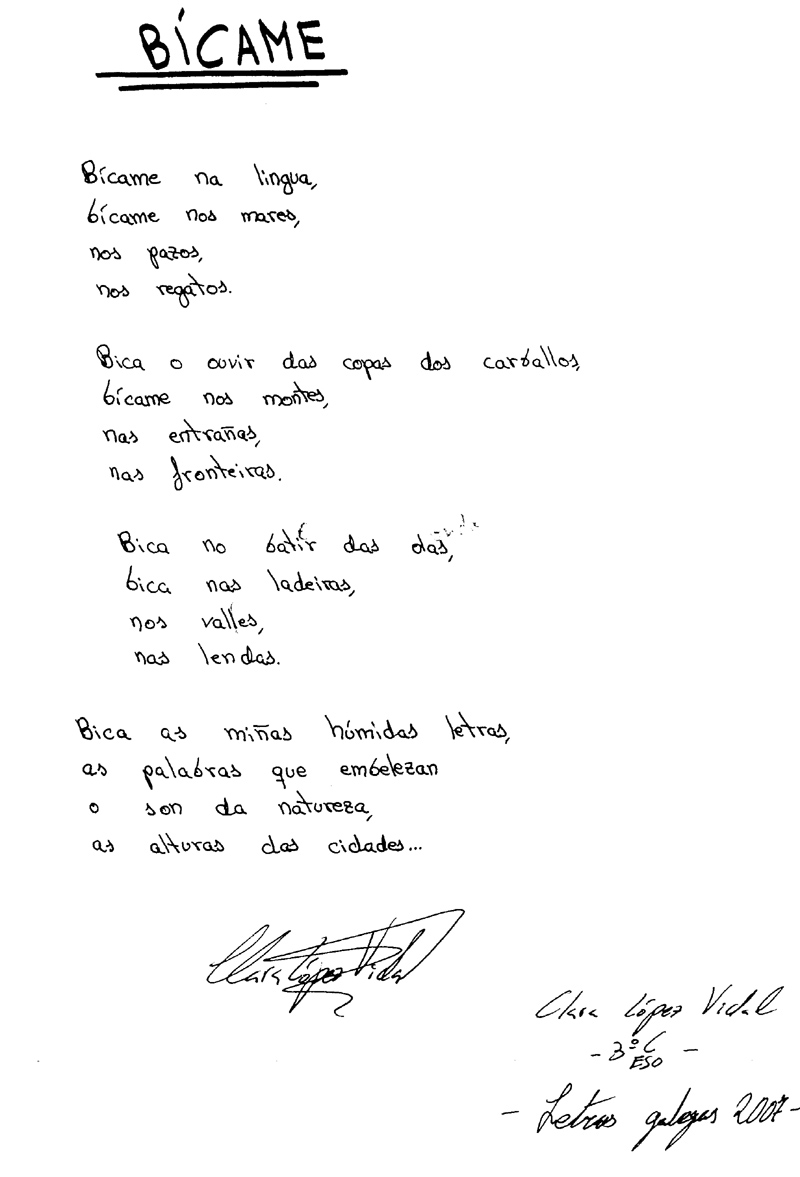 BÍCAME
Bícame na lingua,
bícame nos mares,
nos pazos,
nos regatos.
Bica o ouvir das copas dos carballos,
bícame nos montes,
nas entrañas,
nas fronteiras.
Bica no batir das
bica nas ladeiras,
nos valles,
nas lendas.
Bica as miñas húmidas letras,
as palabras que embelezan
o son da natureza,
as alturas das cidades...
Clara López Vidal
Clara López Vidal
- 3º C -
ESO
- Letras galegas 2007 -